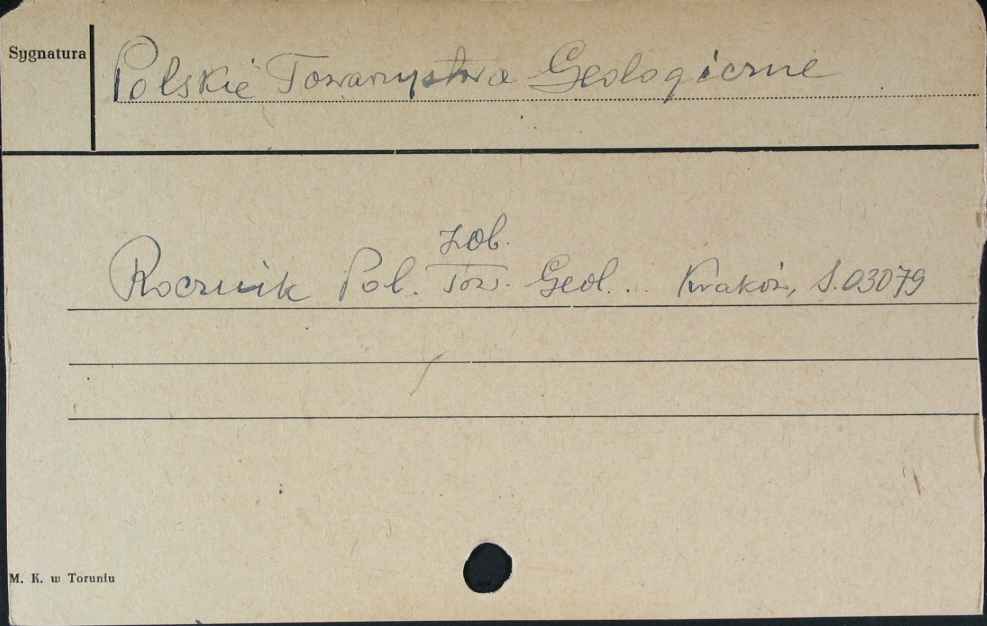 Sygnatura
Polskie Towarzystwo Geologiczne
zob.
Rocznik Pol. Tow. Geol... Kraków, S.03079
M. K. w Toruniu